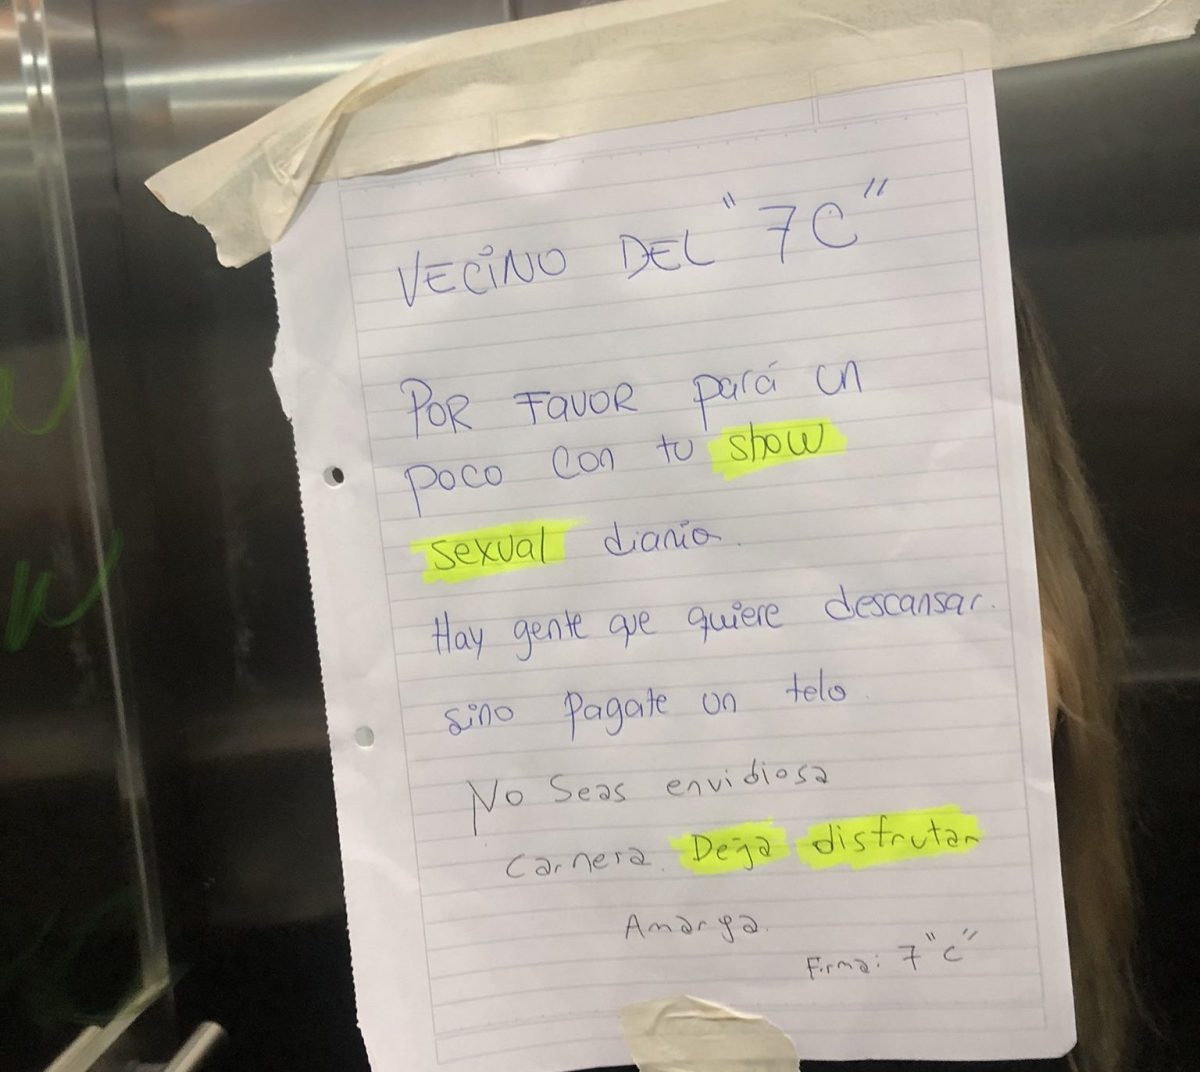 VECINO DEL "7C"
POR FAVOR pará un
poco con tu show
sexual diario.
Hay gente que quiere descansar.
sino pagate un telo.
No Seas envidiosa
carnera. Deja disfrutar
Amarga.
Firma: 7"c"